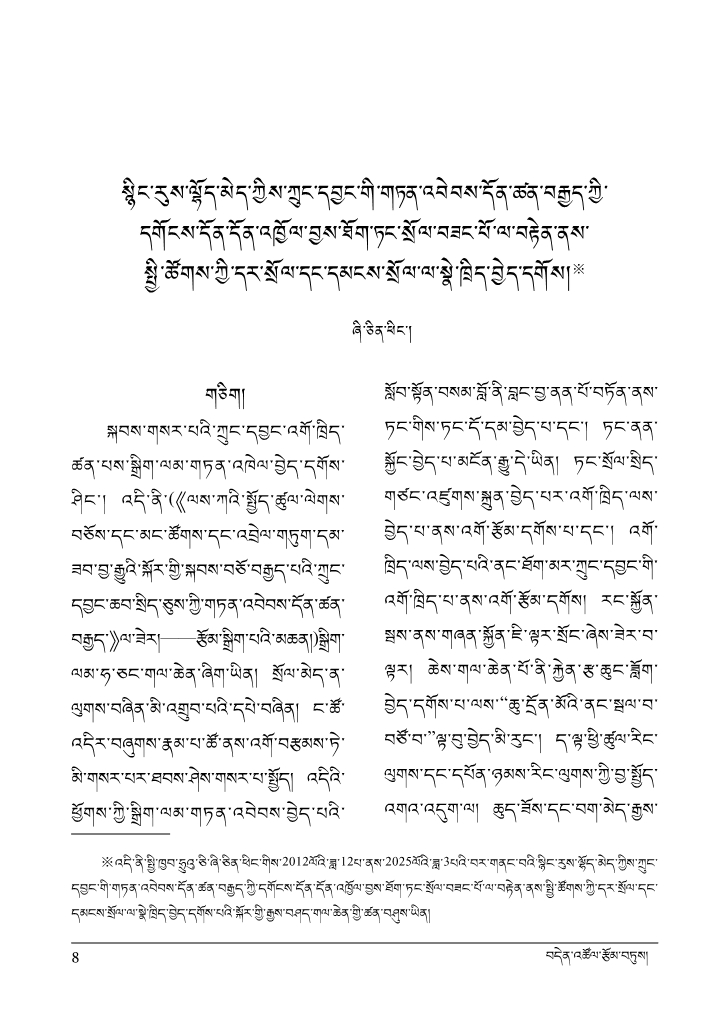 སྙིང་རུས་ལྷོད་མེད་ཀྱིས་ཀྲུང་དབྱང་གི་གཏན་འབེབས་དོན་ཚན་བརྒྱད་ཀྱི་
དགོངས་དོན་དོན་འཁྱོལ་བྱས་ཐོག་ཏང་སྲོལ་བཟང་པོ་ལ་བརྟེན་ནས་
སྤྱི་ཚོགས་ཀྱི་དར་སྲོལ་དང་དམངས་སྲོལ་ལ་སྣེ་ཁྲིད་བྱེད་དགོས།※
ཞི་ཅིན་ཕིང་།
གཅིག།
སྐབས་གསར་པའི་ཀྲུང་དབྱང་འགོ་ཁྲིད་
ཚན་པས་སྒྲིག་ལམ་གཏན་འཁེལ་བྱེད་དགོས་
ཤིང་། འདི་ནི་(《ལས་ཀའི་སྤྱོད་ཚུལ་ལེགས་
བཅོས་དང་མང་ཚོགས་དང་འབྲེལ་གཏུག་དམ་
ཟབ་བྱ་རྒྱུའི་སྐོར་གྱི་སྐབས་བཅོ་བརྒྱད་པའི་ཀྲུང་
དབྱང་ཆབ་སྲིད་ཅུས་ཀྱི་གཏན་འབེབས་དོན་ཚན་
བརྒྱད་》ལ་ཟེར།——རྩོམ་སྒྲིག་པའི་མཆན།)སྒྲིག་
ལམ་ཧ་ཅང་གལ་ཆེན་ཞིག་ཡིན། སྲོལ་མེད་ན་
ལུགས་བཞིན་མི་འགྲུབ་པའི་དཔེ་བཞིན། ང་ཚོ་
འདིར་བཞུགས་རྣམ་པ་ཚོ་ནས་འགོ་བརྩམས་ཏེ་
མི་གསར་པར་ཐབས་ཤེས་གསར་པ་སྤྱོད། འདིའི་
ཕྱོགས་ཀྱི་སྒྲིག་ལམ་གཏན་འབེབས་བྱེད་པའི་
སློབ་སྟོན་བསམ་བློ་ནི་བླང་བྱ་ནན་པོ་བཏོན་ནས་
ཏང་གིས་ཏང་དོ་དམ་བྱེད་པ་དང་། ཏང་ནན་
སྐྱོང་བྱེད་པ་མངོན་རྒྱུ་དེ་ཡིན། ཏང་སྲོལ་སྲིད་
གཙང་འཛུགས་སྐྲུན་བྱེད་པར་འགོ་ཁྲིད་ལས་
བྱེད་པ་ནས་འགོ་རྩོམ་དགོས་པ་དང་། འགོ་
ཁྲིད་ལས་བྱེད་པའི་ནང་ཐོག་མར་ཀྲུང་དབྱང་གི་
འགོ་ཁྲིད་པ་ནས་འགོ་རྩོམ་དགོས། རང་སྐྱོན་
སྦས་ནས་གཞན་སྐྱོན་ཇི་ལྟར་སྲོང་ཞེས་ཟེར་བ་
ལྟར། ཆེས་གལ་ཆེན་པོ་ནི་རྐྱེན་རྩ་ཆུང་ཟློག་
བྱེད་དགོས་པ་ལས་“ཆུ་དྲོན་མོའི་ནང་སྦལ་བ་
བཙོ་བ་”ལྟ་བུ་བྱེད་མི་རུང་། ད་ལྟ་ཕྱི་ཚུལ་རིང་
ལུགས་དང་དཔོན་ཉམས་རིང་ལུགས་ཀྱི་བྱ་སྤྱོད་
འགའ་འདུག་ལ། ཆུད་ཟོས་དང་བག་མེད་རྒྱས་
※འདི་ནི་སྤྱི་ཁྱབ་ཧྲུའུ་ཅི་ཞི་ཅིན་ཕིང་གིས་2012ལོའི་ཟླ་12པ་ནས་2025ལོའི་ཟླ་3པའི་བར་གནང་བའི་སྙིང་རུས་ལྷོད་མེད་ཀྱིས་ཀྲུང་
དབྱང་གི་གཏན་འབེབས་དོན་ཚན་བརྒྱད་ཀྱི་དགོངས་དོན་དོན་འཁྱོལ་བྱས་ཐོག་ཏང་སྲོལ་བཟང་པོ་ལ་བརྟེན་ནས་སྤྱི་ཚོགས་ཀྱི་དར་སྲོལ་དང་
དམངས་སྲོལ་ལ་སྣེ་ཁྲིད་བྱེད་དགོས་པའི་སྐོར་གྱི་རྒྱས་བཤད་གལ་ཆེན་གྱི་ཚན་བཤུས་ཡིན།
8
བདེན་འཚོལ་རྩོམ་བཏུས།